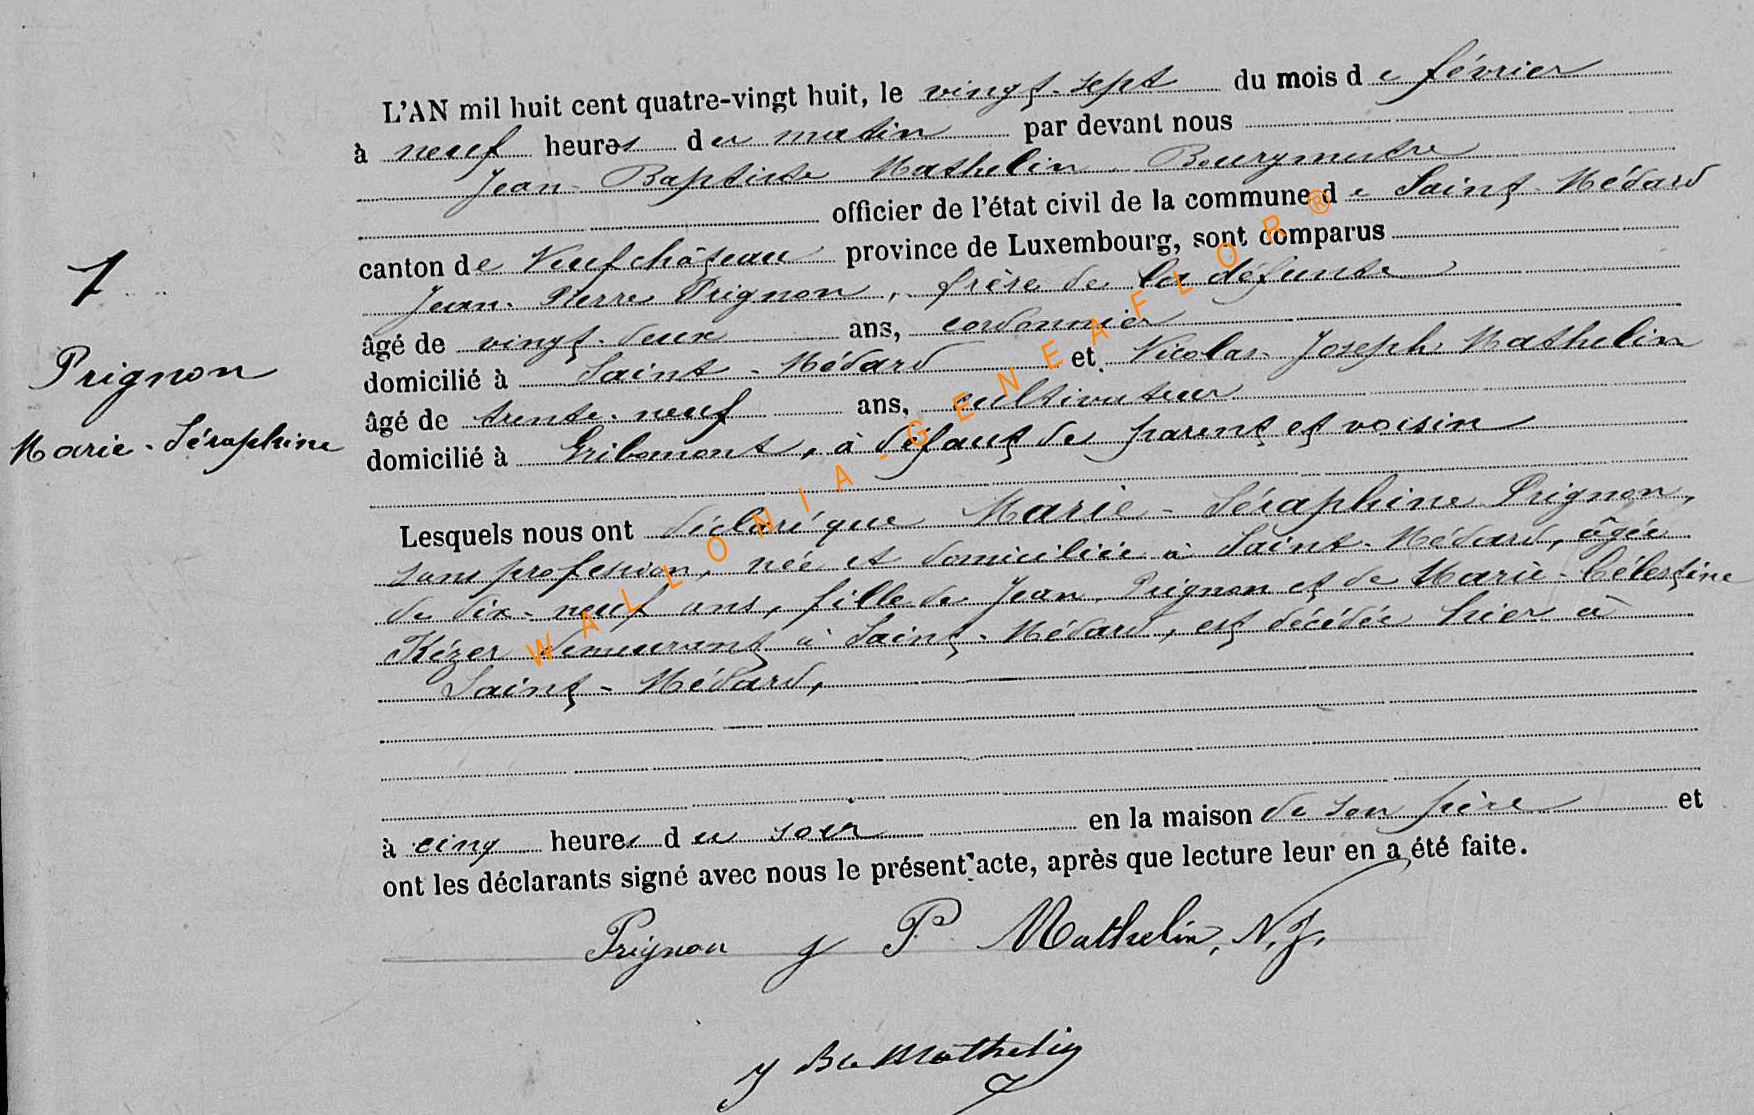 L'AN mil huit cent quatre-vingt huit, le vingt-sept du mois de février
à neuf heures du matin par devant nous
Jean-Baptiste Mathelin, Bourgmestre
officier de l'état civil de la commune de Saint-Médard
canton de Neufchâteau province de Luxembourg, sont comparus
Jean-Pierre Prignon, frère de la défunte
âgé de vingt-deux ans, cordonnier
domicilié à Saint-Médard et Nicolas-Joseph Mathelin
âgé de trente-neuf ans, cultivateur
domicilié à Gribomont, à défaut de parent et voisin
Lesquels nous ont déclaré que Marie-Séraphine Prignon,
sans profession, née et domiciliée à Saint-Médard, âgée
de dix-neuf ans, fille de Jean Prignon et de Marie-Célestine
Kézer demeurant à Saint-Médard, est décédée hier à
Saint-Médard,
à cinq heures du soir en la maison de son père et
ont les déclarants signé avec nous le présent acte, après que lecture leur en a été faite.
Prignon J P Mathelin, N.J.
J Bte Mathelin
7
Prignon
Marie-Séraphine
WALLONIA-GENEAFLOR®